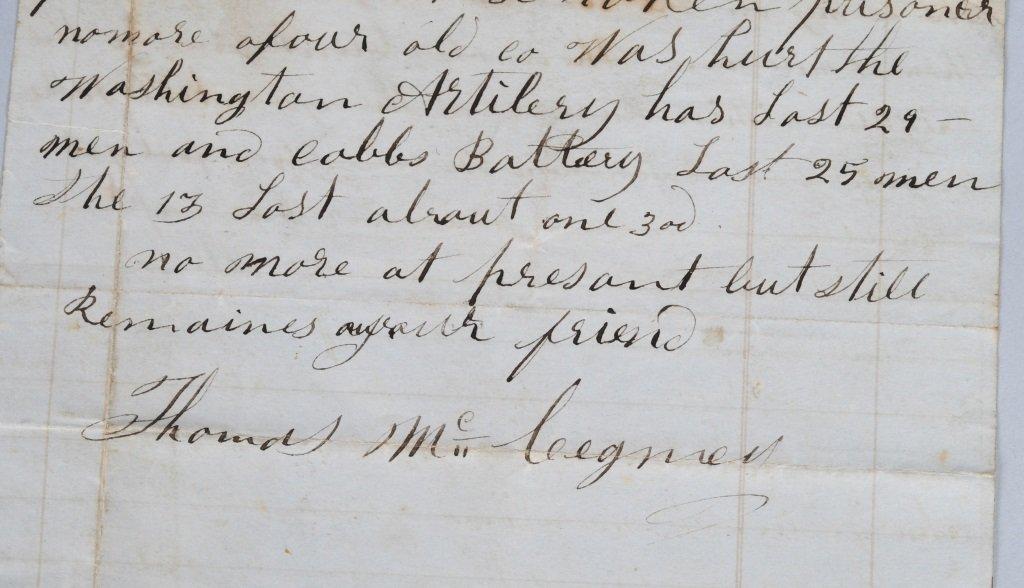 taken prisoner
nomore ofour old co Was hurt the
Washington Artilery has Lost 29 -
men and cobbs Battery Lost 25 men
the 13 Lost about one 3od
no more at presant but still
Remaines your friend
Thomas Mc